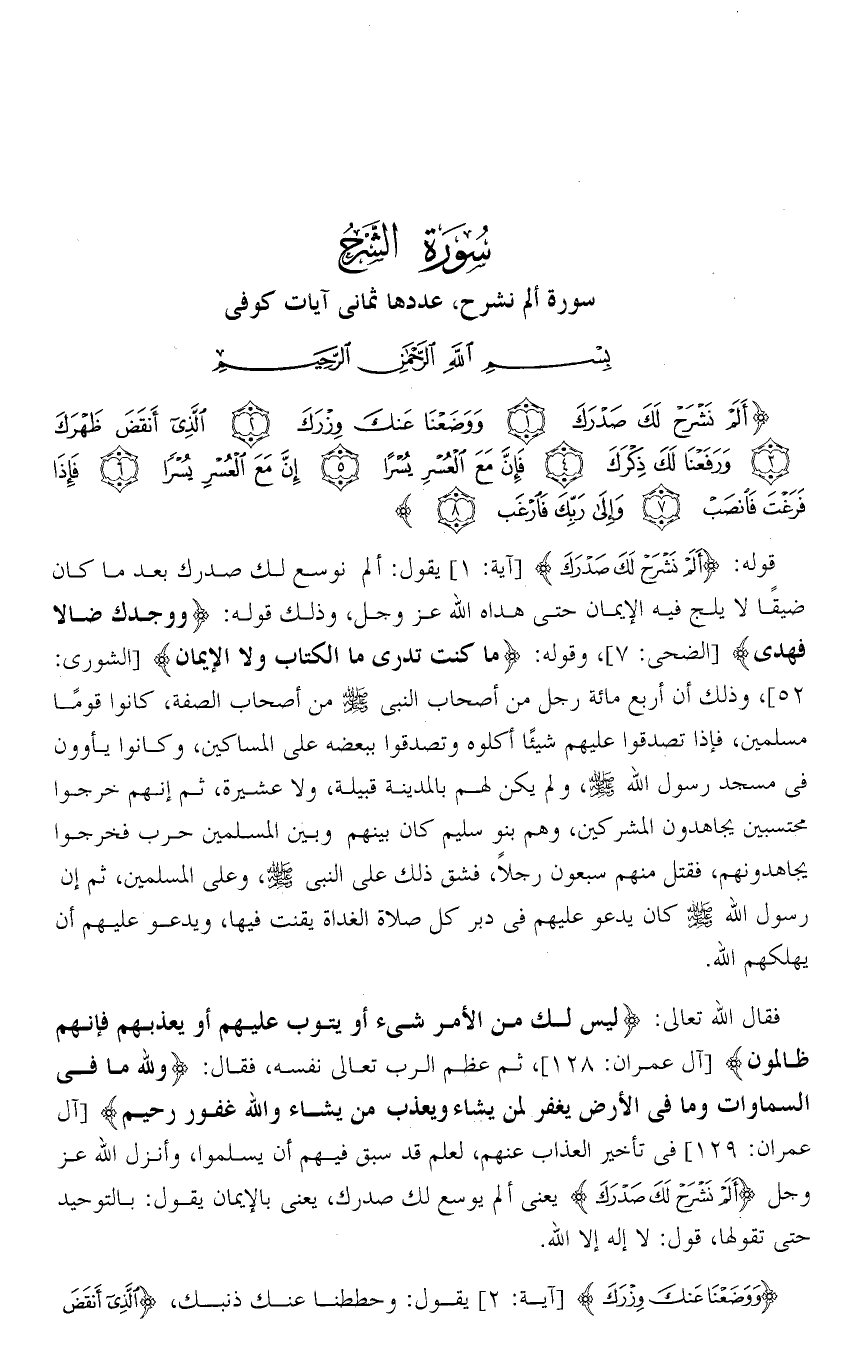 سُورَةُ الشَّرْحِ
سورة ألم نشرح، عددها ثمانى آيات كوفى
بِسْمِ ٱللَّهِ ٱلرَّحْمَٰنِ ٱلرَّحِيمِ
﴿أَلَمْ نَشْرَحْ لَكَ صَدْرَكَ ۝١ وَوَضَعْنَا عَنكَ وِزْرَكَ ۝٢ ٱلَّذِىٓ أَنقَضَ ظَهْرَكَ
۝٣ وَرَفَعْنَا لَكَ ذِكْرَكَ ۝٤ فَإِنَّ مَعَ ٱلْعُسْرِ يُسْرًا ۝٥ إِنَّ مَعَ ٱلْعُسْرِ يُسْرًا ۝٦ فَإِذَا
فَرَغْتَ فَٱنصَبْ ۝٧ وَإِلَىٰ رَبِّكَ فَٱرْغَب ۝٨ ﴾
قوله: ﴿أَلَمْ نَشْرَحْ لَكَ صَدْرَكَ﴾ [آية: ١] يقول: ألم نوسع لك صدرك بعد ما كان
ضيقًا لا يلج فيه الإيمان حتى هداه الله عز وجل، وذلك قوله: ﴿ووجدك ضالا
فهدى﴾ [الضحى: ٧]، وقوله: ﴿ما كنت تدرى ما الكتاب ولا الإيمان﴾ [الشورى:
٥٢]، وذلك أن أربع مائة رجل من أصحاب النبى ﷺ من أصحاب الصفة، كانوا قومًا
مسلمين، فإذا تصدقوا عليهم شيئًا أكلوه وتصدقوا ببعضه على المساكين، وكانوا يأوون
فى مسجد رسول الله ﷺ، ولم يكن لهم بالمدينة قبيلة، ولا عشيرة، ثم إنهم خرجوا
محتسبين يجاهدون المشركين، وهم بنو سليم كان بينهم وبين المسلمين حرب فخرجوا
يجاهدونهم، فقتل منهم سبعون رجلاً، فشق ذلك على النبى ﷺ، وعلى المسلمين، ثم إن
رسول الله ﷺ كان يدعو عليهم فى دبر كل صلاة الغداة يقنت فيها، ويدعو عليهم أن
يهلكهم الله.
فقال الله تعالى: ﴿ليس لك من الأمر شىء أو يتوب عليهم أو يعذبهم فإنهم
ظالمون﴾ [آل عمران: ١٢٨]، ثم عظم الرب تعالى نفسه، فقال: ﴿ولله ما فى
السماوات وما فى الأرض يغفر لمن يشاء ويعذب من يشاء والله غفور رحيم﴾ [آل
عمران: ١٢٩] فى تأخير العذاب عنهم، لعلم قد سبق فيهم أن يسلموا، وأنزل الله عز
وجل ﴿أَلَمْ نَشْرَحْ لَكَ صَدْرَكَ ﴾ يعنى ألم يوسع لك صدرك، يعنى بالإيمان يقول: بالتوحيد
حتى تقولها، قول: لا إله إلا الله.
﴿وَوَضَعْنَا عَنكَ وِزْرَكَ ﴾ [آية: ٢] يقول: وحططنا عنك ذنبك، ﴿ٱلَّذِىٓ أَنقَضَ